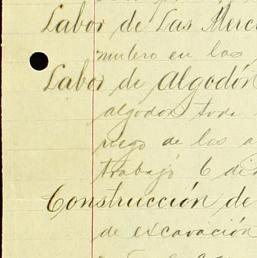 Labor de Las Merc
mulero en las
Labor de Algodón
algodon toda
riego de los a
trabajó 6 di
Construcción de
de excavación